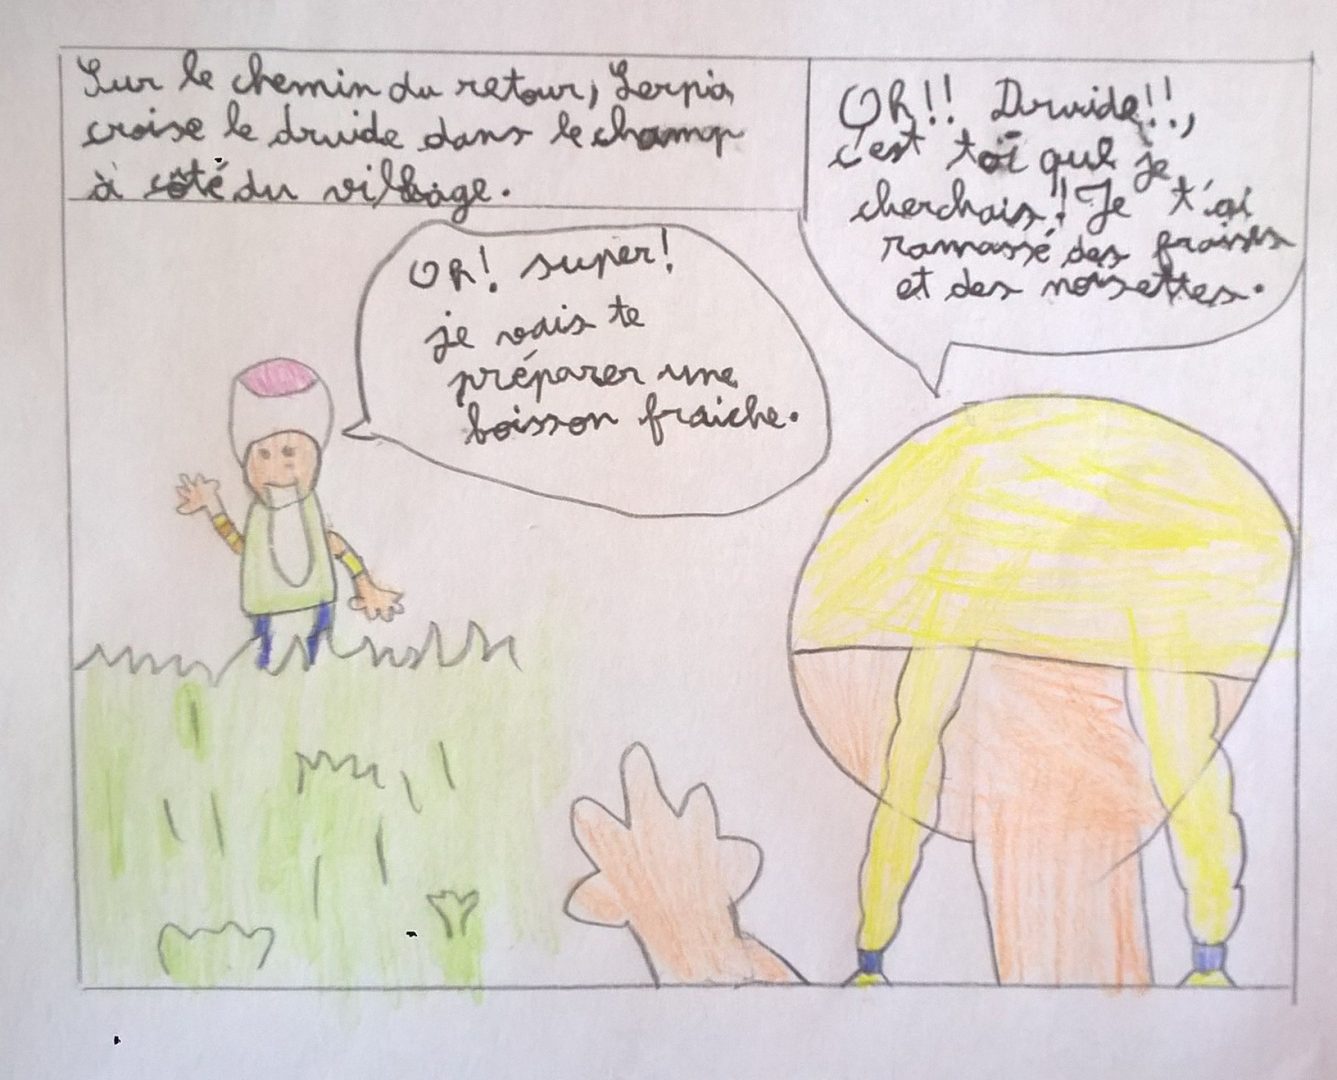 Sur le chemin du retour, Serpia
croise le druide dans le champ
à côté du village.
Oh!! Druide!!,
c'est toi que je
cherchais! Je t'ai
ramassé des fraises
et des noisettes.
Oh! super!
je vais te
préparer une
boisson fraiche.